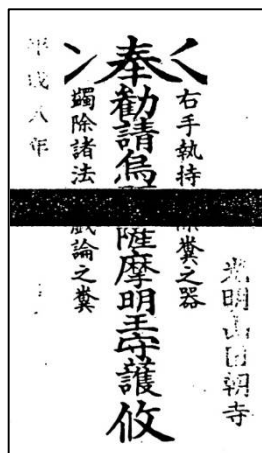 光明山日朝寺
右手執持 除糞之器
奉勸請烏 薩摩明王守護攸
蠲除諸法 戲論之糞
平成八年